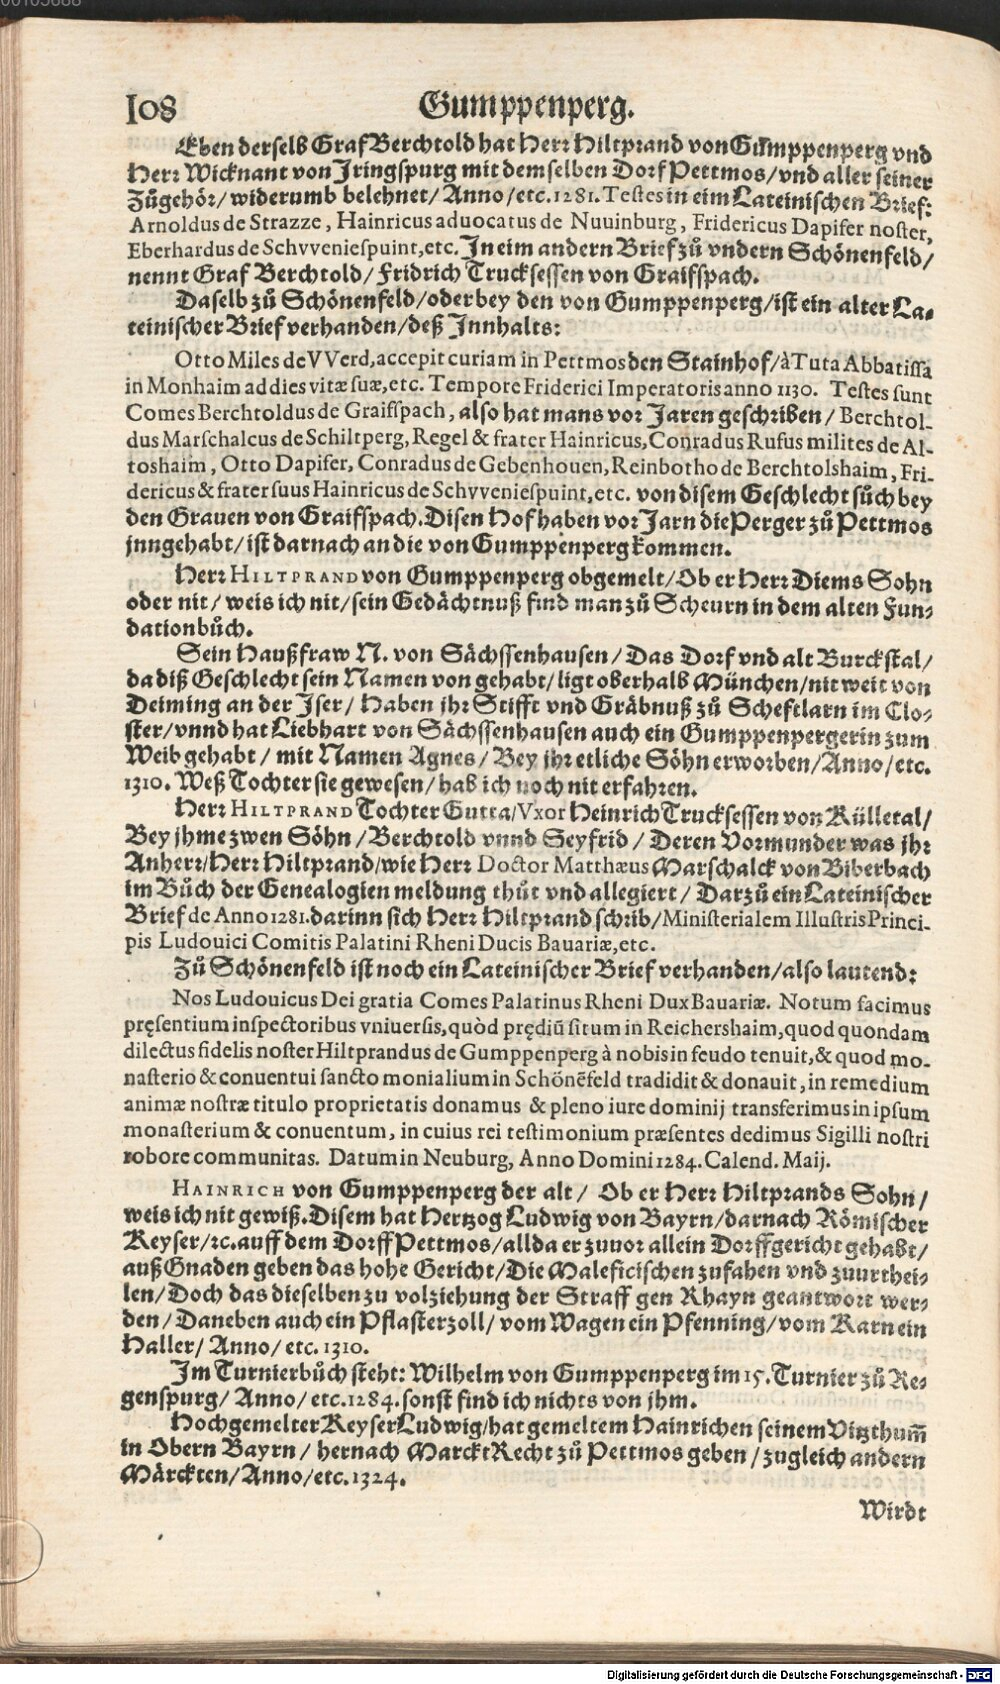 108 Gumppenperg.
Eben derselb Graf Berchtold hat Herr Hiltprand von Gum̃ppenperg vnd
Herr Wicknant von Jringspurg mit demselben Dorf Pettmos/ vnd aller seiner
Zůgehör/ widerumb belehnet/ Anno/ etc. 1281. Testes in eim Lateinischen Brief:
Arnoldus de Strazze, Hainricus aduocatus de Nuuinburg, Fridericus Dapifer noster,
Eberhardus de Schvveniespuint, etc. Jn eim andern Brief zů vndern Schönenfeld/
nennt Graf Berchtold/ Fridrich Trucksessen von Graifspach.
Daselb zů Schönenfeld/ oder bey den von Gumppenperg/ ist ein alter La-
teinischer Brief verhanden/ deß Jnnhalts:
Otto Miles de VVerd, accepit curiam in Pettmos den Stainhof/ à Tuta Abbatissa
in Monhaim ad dies vitæ suæ, etc. Tempore Friderici Imperatoris anno 1130. Testes sunt
Comes Berchtoldus de Graifspach, also hat mans vor Jaren geschriben/ Berchtol-
dus Marschalcus de Schiltperg, Regel & frater Hainricus, Conradus Rufus milites de Al-
toshaim, Otto Dapifer, Conradus de Gebenhouen, Reinbotho de Berchtolshaim, Fri-
dericus & frater suus Hainricus de Schvveniespuint, etc. von disem Geschlecht sůch bey
den Grauen von Graifspach. Disen Hof haben vor Jarn die Perger zů Pettmos
jnngehabt/ ist darnach an die von Gumppenperg kommen.
Herr HILTPRAND von Gumppenperg obgemelt/ Ob er Herr Diems Sohn
oder nit/ weis ich nit/ sein Gedächtnuß find man zů Scheurn in dem alten Fun-
dationbůch.
Sein Haußfraw N. von Sächssenhausen/ Das Dorf vnd alt Burckstal/
da diß Geschlecht sein Namen von gehabt/ ligt oberhalb München/ nit weit von
Deiming an der Jser/ Haben jhr Stifft vnd Gräbnuß zů Scheftlarn im Clo-
ster/ vnnd hat Liebhart von Sächssenhausen auch ein Gumppenpergerin zum
Weib gehabt/ mit Namen Agnes/ Bey jhr etliche Söhn erworben/ Anno/ etc.
1310. Weß Tochter sie gewesen/ hab ich noch nit erfahren.
Herr HILTPRAND Tochter Gutta/ Vxor Heinrich Trucksessen von Külletal/
Bey jhme zwen Söhn/ Berchtold vnnd Seyfrid/ Deren Vormunder was jhr
Anherr/ Herr Hiltprand/ wie Herr Doctor Matthæus Marschalck von Biberbach
im Bůch der Genealogien meldung thůt vnd allegiert/ Darzů ein Lateinischer
Brief de Anno 1281. darinn sich Herr Hiltprand schrib/ Ministerialem Illustris Princi-
pis Ludouici Comitis Palatini Rheni Ducis Bauariæ, etc.
Zů Schönenfeld ist noch ein Lateinischer Brief verhanden/ also lautend:
Nos Ludouicus Dei gratia Comes Palatinus Rheni Dux Bauariæ. Notum facimus
pręsentium inspectoribus vniuersis, quòd prędiũ situm in Reichershaim, quod quondam
dilectus fidelis noster Hiltprandus de Gumppenperg à nobis in feudo tenuit, & quod mo-
nasterio & conuentui sancto monialium in Schönẽfeld tradidit & donauit, in remedium
animæ nostræ titulo proprietatis donamus & pleno iure dominij transferimus in ipsum
monasterium & conuentum, in cuius rei testimonium præsentes dedimus Sigilli nostri
robore communitas. Datum in Neuburg, Anno Domini 1284. Calend. Maij.
HAINRICH von Gumppenperg der alt/ Ob er Herr Hiltprands Sohn/
weis ich nit gewiß. Disem hat Hertzog Ludwig von Bayrn/ darnach Römischer
Keyser/ ꝛc. auff dem Dorff Pettmos/ allda er zuuor allein Dorffgericht gehabt/
auß Gnaden geben das hohe Gericht/ Die Maleficischen zufahen vnd zuurthei-
len/ Doch das dieselben zu volziehung der Straff gen Rhayn geantwort wer-
den/ Daneben auch ein Pflasterzoll/ vom Wagen ein Pfenning/ vom Karn ein
Haller/ Anno/ etc. 1310.
Jm Turnierbůch steht: Wilhelm von Gumppenperg im 15. Turnier zů Re-
genspurg/ Anno/ etc. 1284. sonst find ich nichts von jhm.
Hochgemelter Keyser Ludwig/ hat gemeltem Hainrichen seinem Vitzthum̃
in Obern Bayrn/ hernach Marckt Recht zů Pettmos geben/ zugleich andern
Märckten/ Anno/ etc. 1324.
Wirdt
Digitalisierung gefördert durch die Deutsche Forschungsgemeinschaft - DFG